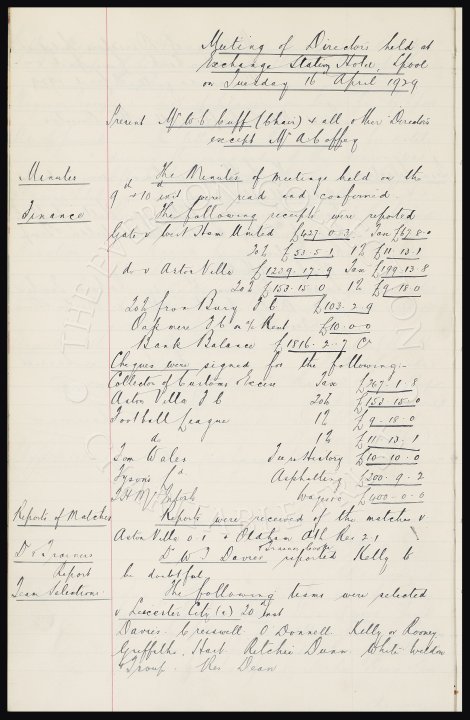 Meeting of Directors held at
Exchange Station Hotel, Lpool
on Tuesday 16 April 1929
Present Mr W. C. Cuff (Chair) & all other Directors
except Mr A Coffey
Minutes
The Minutes of meetings held on the
9th & 10th inst were read and confirmed
Finance
The following receipts were reported
Gate v West Ham United £427-0-3 Tax £67-8-0
20% £53-5-1 1% £11-13-1
do v Aston Villa £1239-17-9 Tax £199-13-8
20% £153-15-0 1% £9-18-0
20% from Bury F C £103-2-9
Oakmere F C a/c Rent £10-0-0
Bank Balance £1816-2-7 Cr
Cheques were signed for the following:-
Collector of Customs & Excise Tax £267-1-8
Aston Villa F C 20% £153-15-0
Football League 1% £9-18-0
do 1% £11-13-1
Tom Wales History £10-10-0
Tysons Ld Asphalting £200-9-2
T. H. McIntosh Wages £400-0-0
Reports of Matches
Reports were received of the matches v
Aston Villa 0.1 & Oldham Ath Res 2.1
Dr & Trainers
Report
Dr W J Davies reported Kelly to
be doubtful
Team Selections
The following teams were selected
v Leicester City (a) 20th inst
Davies. Cresswell O Donnell. Kelly or Rooney
Griffiths. Hart. Ritchie Dunn White Weldon
& Troup. Res Dean